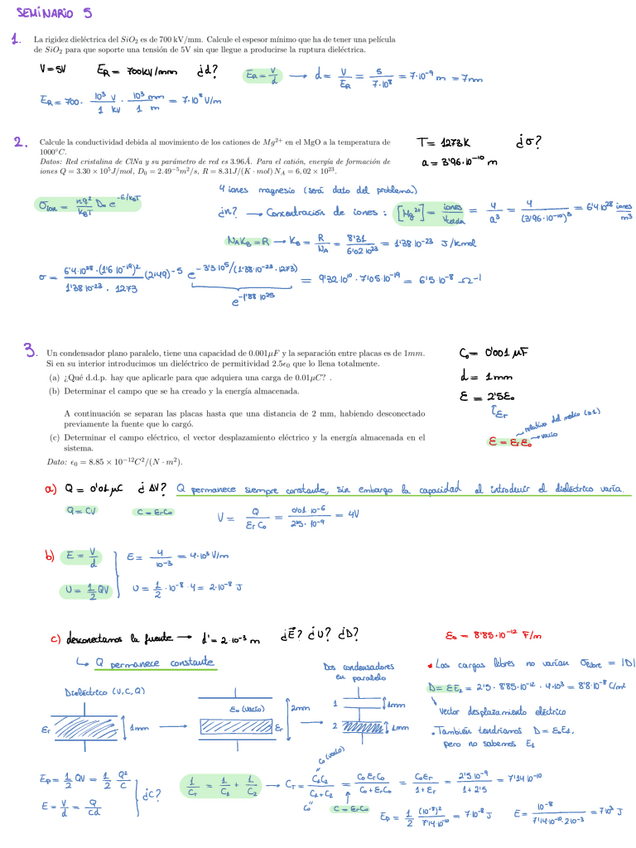 SEMINARIO 5
1. La rigidez dieléctrica del SiO2 es de 700 kV/mm. Calcule el espesor mínimo que ha de tener una película
de SiO2 para que soporte una tensión de 5V sin que llegue a producirse la ruptura dieléctrica.
V = 5V    E_R = 700 kV/mm    ¿d?    E_R = V/d → d = V/E_R = 5/7·10^8 = 7·10^-9 m = 7nm
E_R = 700 · 10^3 V/1 kV · 10^3 mm/1 m = 7·10^8 V/m
2. Calcule la conductividad debida al movimiento de los cationes de Mg^2+ en el MgO a la temperatura de
1000°C.
Datos: Red cristalina de ClNa y su parámetro de red es 3.96Å. Para el catión, energía de formación de
iones Q = 3.30 × 10^5 J/mol, D0 = 2.49^-5 m^2/s, R = 8.31J/(K · mol) NA = 6,02 × 10^23.
T = 1273K    ¿σ?
a = 3'96·10^-10 m
4 iones magnesio (será dato del problema)
σ_ion = nq²/k_BT D₀ e^-E/k_BT
¿n? → Concentración de iones : [Mg^2+] = iones/Vcelda = 4/a³ = 4/(3'96·10^-10)³ = 6'4 10^28 iones/m³
N_A K_B = R → K_B = R/N_A = 8'31/6'02 10^23 = 1'38 10^-23 J/kmol
σ = 6'4·10^28·(1'6 10^-19)²/1'38 10^-23 · 1273 (2'49)^-5 e^-3'3 10^5/(1'38 10^-23 · 1273) = 9'32 10^10 · 7'05 10^-19 = 6'5 10^-8 Ω^-1
e^-1'88 10^25
3. Un condensador plano paralelo, tiene una capacidad de 0.001μF y la separación entre placas es de 1mm.
Si en su interior introducimos un dieléctrico de permitividad 2.5ε0 que lo llena totalmente.
(a) ¿Qué d.d.p. hay que aplicarle para que adquiera una carga de 0.01μC? .
(b) Determinar el campo que se ha creado y la energía almacenada.
A continuación se separan las placas hasta que una distancia de 2 mm, habiendo desconectado
previamente la fuente que lo cargó.
(c) Determinar el campo eléctrico, el vector desplazamiento eléctrico y la energía almacenada en el
sistema.
Dato: ε0 = 8.85 × 10^-12 C²/(N · m²).
C₀ = 0'001 μF
d = 1mm
ε = 2'5ε₀
εr
relativo del medio
ε = εr ε₀ → vacío
a) Q = 0'01 μC    ¿ΔV?    Q permanece siempre constante, sin embargo la capacidad al introducir el dieléctrico varía.
q = CV    C = εrC₀    V = Q/εr C₀ = 0'01 10^-6/2'5 · 10^-9 = 4V
b) E = V/d    E = 4/10^-3 = 4·10³ V/m
U = 1/2 QV    U = 1/2 · 10^-8 · 4 = 2·10^-8 J
c) desconectamos la fuente → d' = 2·10^-3 m    ¿E? ¿U? ¿D?    ε₀ = 8'85·10^-12 F/m
↳ Q permanece constante
Dieléctrico (V, C, Q)
εr    1mm
ε₀ (vacío)    εr    2mm
Dos condensadores
en paralelo
1    1mm
2    1mm
• Las cargas libres no varían σlibre = |D|
D = εE₂ = 2'5 · 8'85·10^-12 · 4·10³ = 8'8·10^-8 C/m²
Vector desplazamiento eléctrico
• También tendríamos D = ε₀E₁,
pero no sabemos E₁
Ep = 1/2 QV = 1/2 Q²/C
E = V/d = Q/Cd
¿C?
1/C_T = 1/C₁ + 1/C₂ → C_T = C₁C₂/C₁+C₂ = C₀ εrC₀/C₀ + εrC₀ = C₀εr/1+εr = 2'5 10^-9/1+2'5 = 7'14 10^-10
C₀ (vacío)
C₀    C = εrC₀
Ep = 1/2 (10^-8)²/7'14 10^-10 = 7·10^-8 J    E = 10^-8/7'14 10^-10 · 2·10^-3 = 7·10³ J